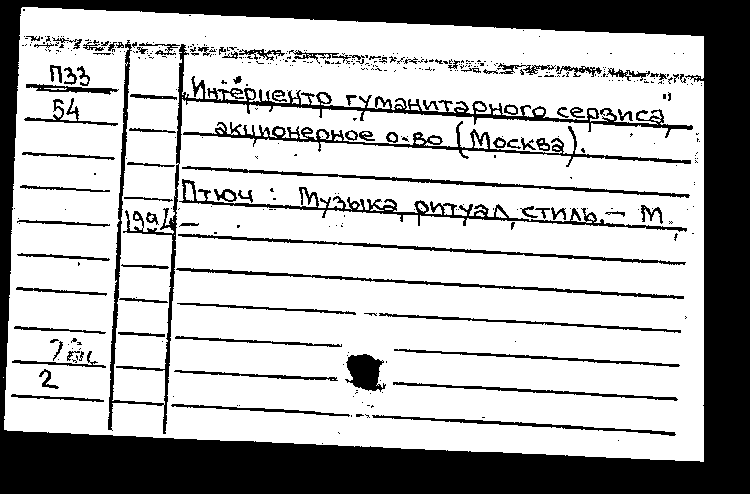 П33
54
„Интерцентр гуманитарного сервиса",
акционерное о-во (Москва).
Птюч : Музыка, ритуал, стиль. – М.,
1994 –
2